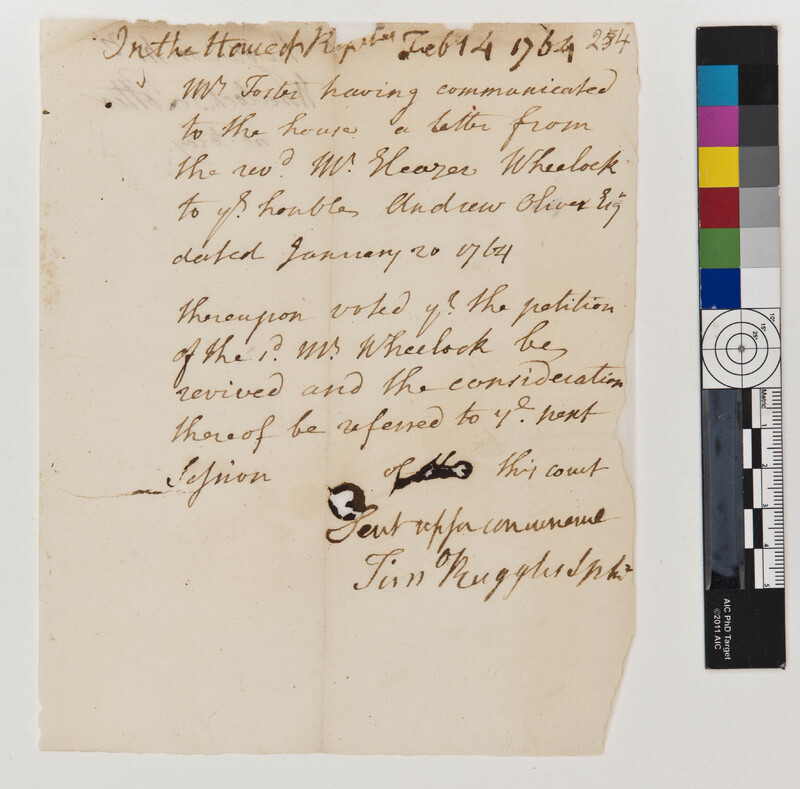 In the House of Reptives Feb 14 1764 254
Mr Foster having communicated
to the house a letter from
the revd. Mr. Eleazer Wheelock
to ye. honble Andrew Oliver Esq
dated January 20 1764
thereupon voted yt. the petition
of the sd. Mr Wheelock be
revived and the consideration
thereof be referred to ye. next
Session of this court
Sent up for concurrence
Timo Ruggles Spkr
10°
20°
Metric
1
2
3
4
5
AIC PhD Target
©2011 AIC